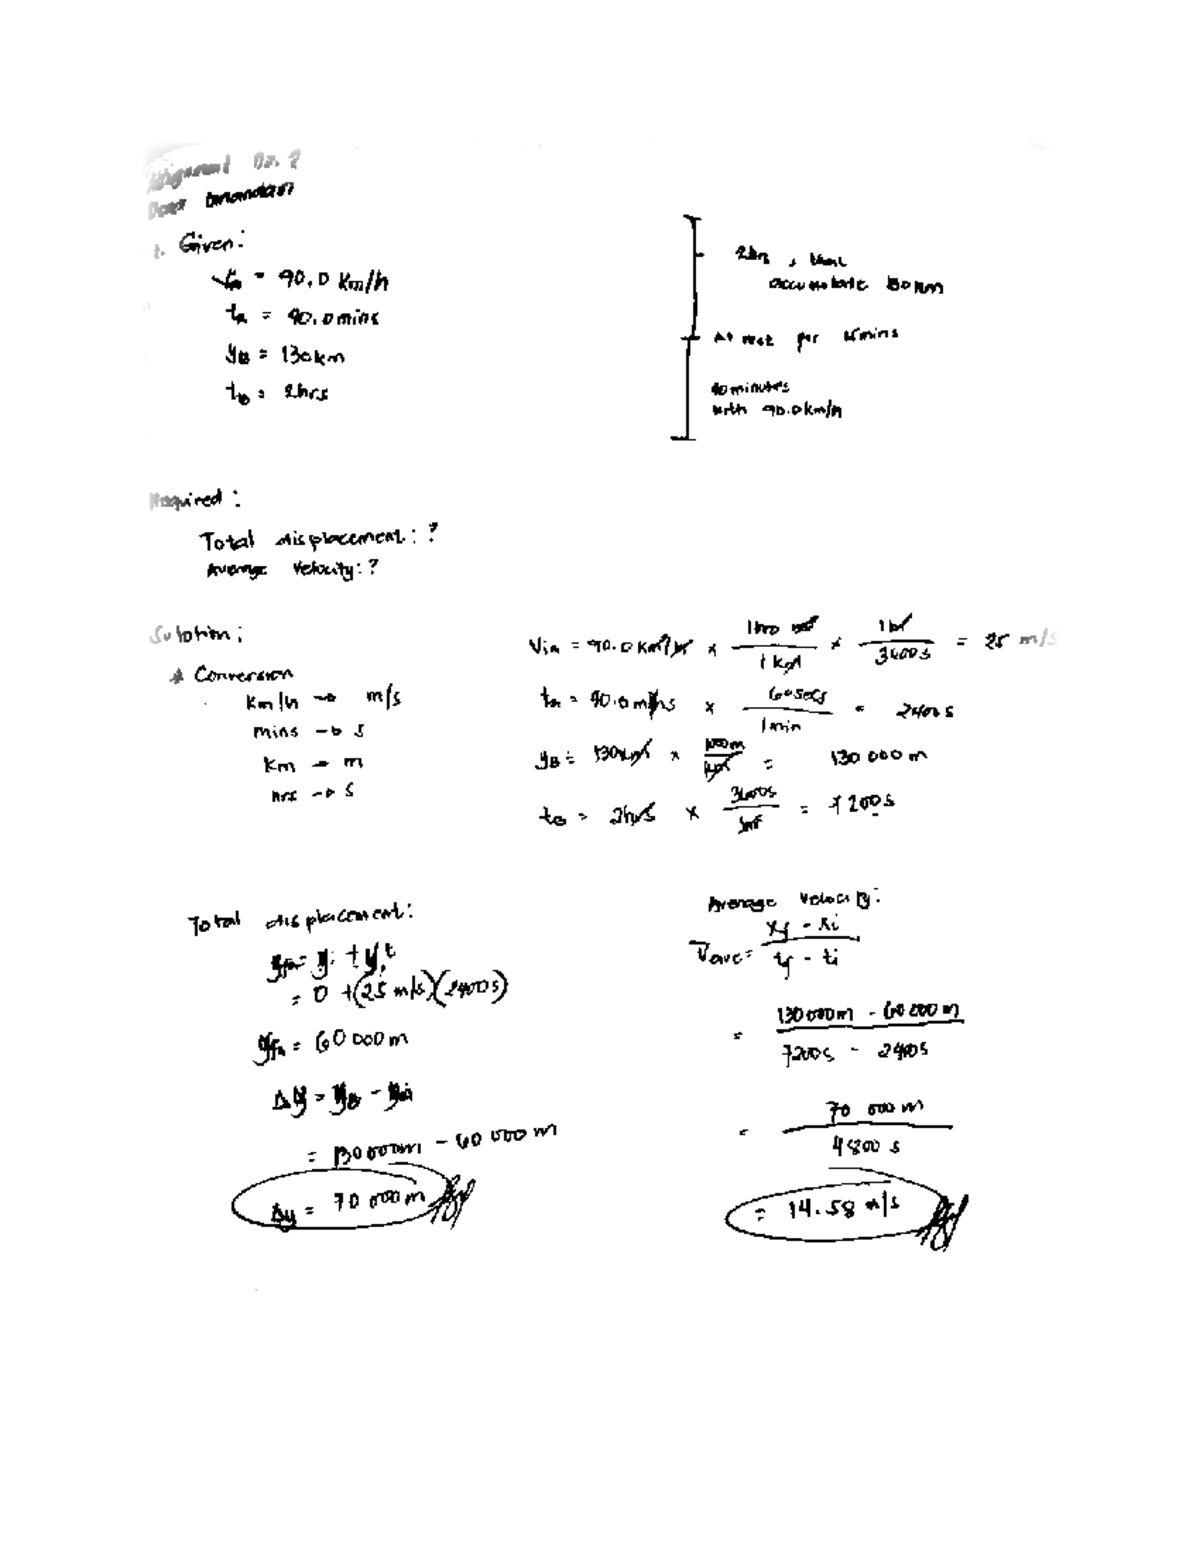 Assignment No. 2
1. Given:
= 90.0 km/h
tA = 40.0 mins
yB = 130km
tB = 2hrs
2hrs, total
accumulate 130km
At rest per 15mins
40 minutes
with 90.0km/h
Required:
Total displacement: ?
Average Velocity: ?
Solution:
* Conversion
km/h → m/s
mins → s
km → m
hrs → s
Vin = 90.0 km/hr × 1000 m / 1 km × 1hr / 3600s = 25 m/s
tA = 40.0 mins × 60 secs / 1 min = 2400s
yB = 130km × 1000m / km = 130 000 m
tB = 2hrs × 3600s / 1hr = 7200s
Total displacement:
= 0 + (25 m/s)(2400s)
yfA = 60 000 m
Δy = yB - yA
= 130 000m - 60 000 m
Δy = 70 000 m
Average Velocity:
Vave = xf - xi / tf - ti
= 130 000m - 60 000 m / 7200s - 2400s
= 70 000 m / 4800 s
= 14.58 m/s